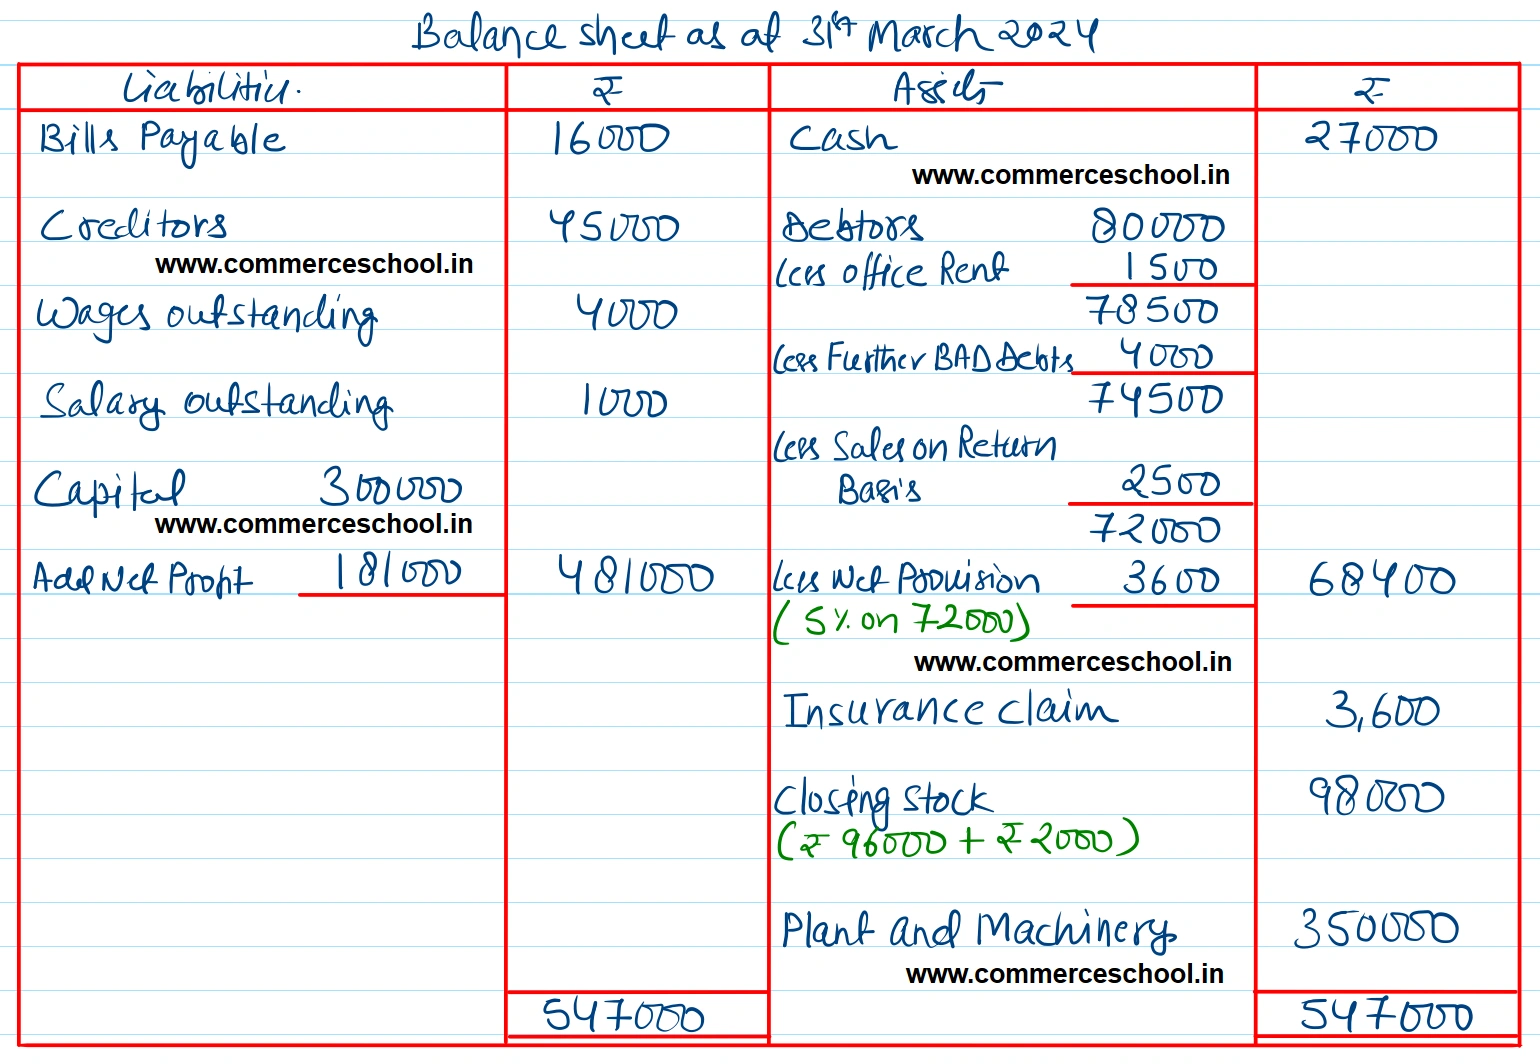 Balance sheet as at 31st March 2024
Liabilities. ₹ Assets ₹
Bills Payable 16000 Cash 27000
www.commerceschool.in
Creditors 45000 Debtors 80000
www.commerceschool.in less office Rent 1500
Wages outstanding 4000 78500
less Further BAD Debts 4000
Salary outstanding 1000 74500
less Sales on Return
Capital 300000 Basis 2500
www.commerceschool.in 72000
Add Net Profit 181000 481000 less Net Provision 3600 68400
(5% on 72000)
www.commerceschool.in
Insurance claim 3,600
Closing stock 98000
(₹ 96000 + ₹ 2000)
Plant and Machinery 350000
www.commerceschool.in
547000 547000